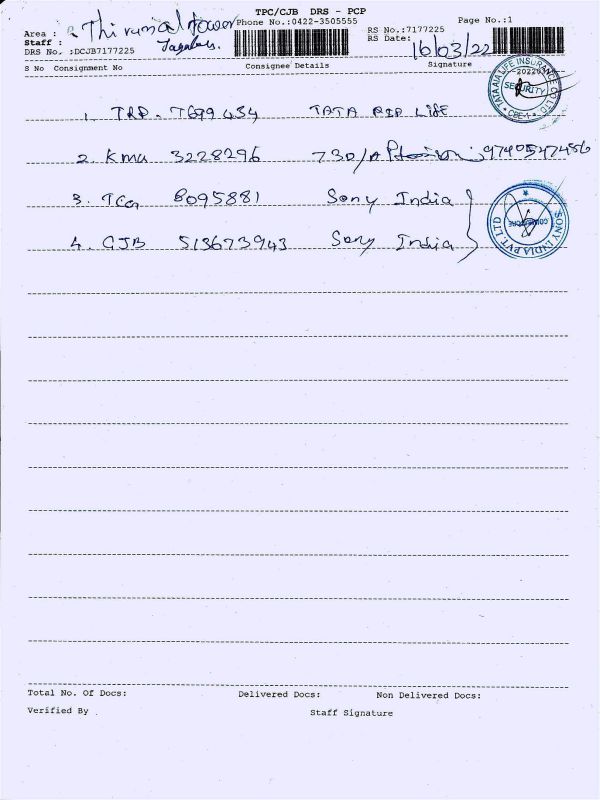 TPC/CJB DRS - PCP
Area : Thirumal tower Phone No.:0422-3505555 Page No.:1
Staff : RS No.:7177225
DRS No. :DCJB7177225 RS Date: 16/03/22
S No Consignment No Consignee Details Signature
TATA AIA LIFE INSURANCE CO LTD
SECURITY
1. TRP. 7699434 TATA AIA LIFE
2. KMU 3228296 730/A 9740547456
3. TCR 8095881 Sony India
4. CJB 513673943 Sony India
SONY INDIA PVT. LTD
COIMBATORE
Total No. Of Docs: Delivered Docs: Non Delivered Docs:
Verified By Staff Signature